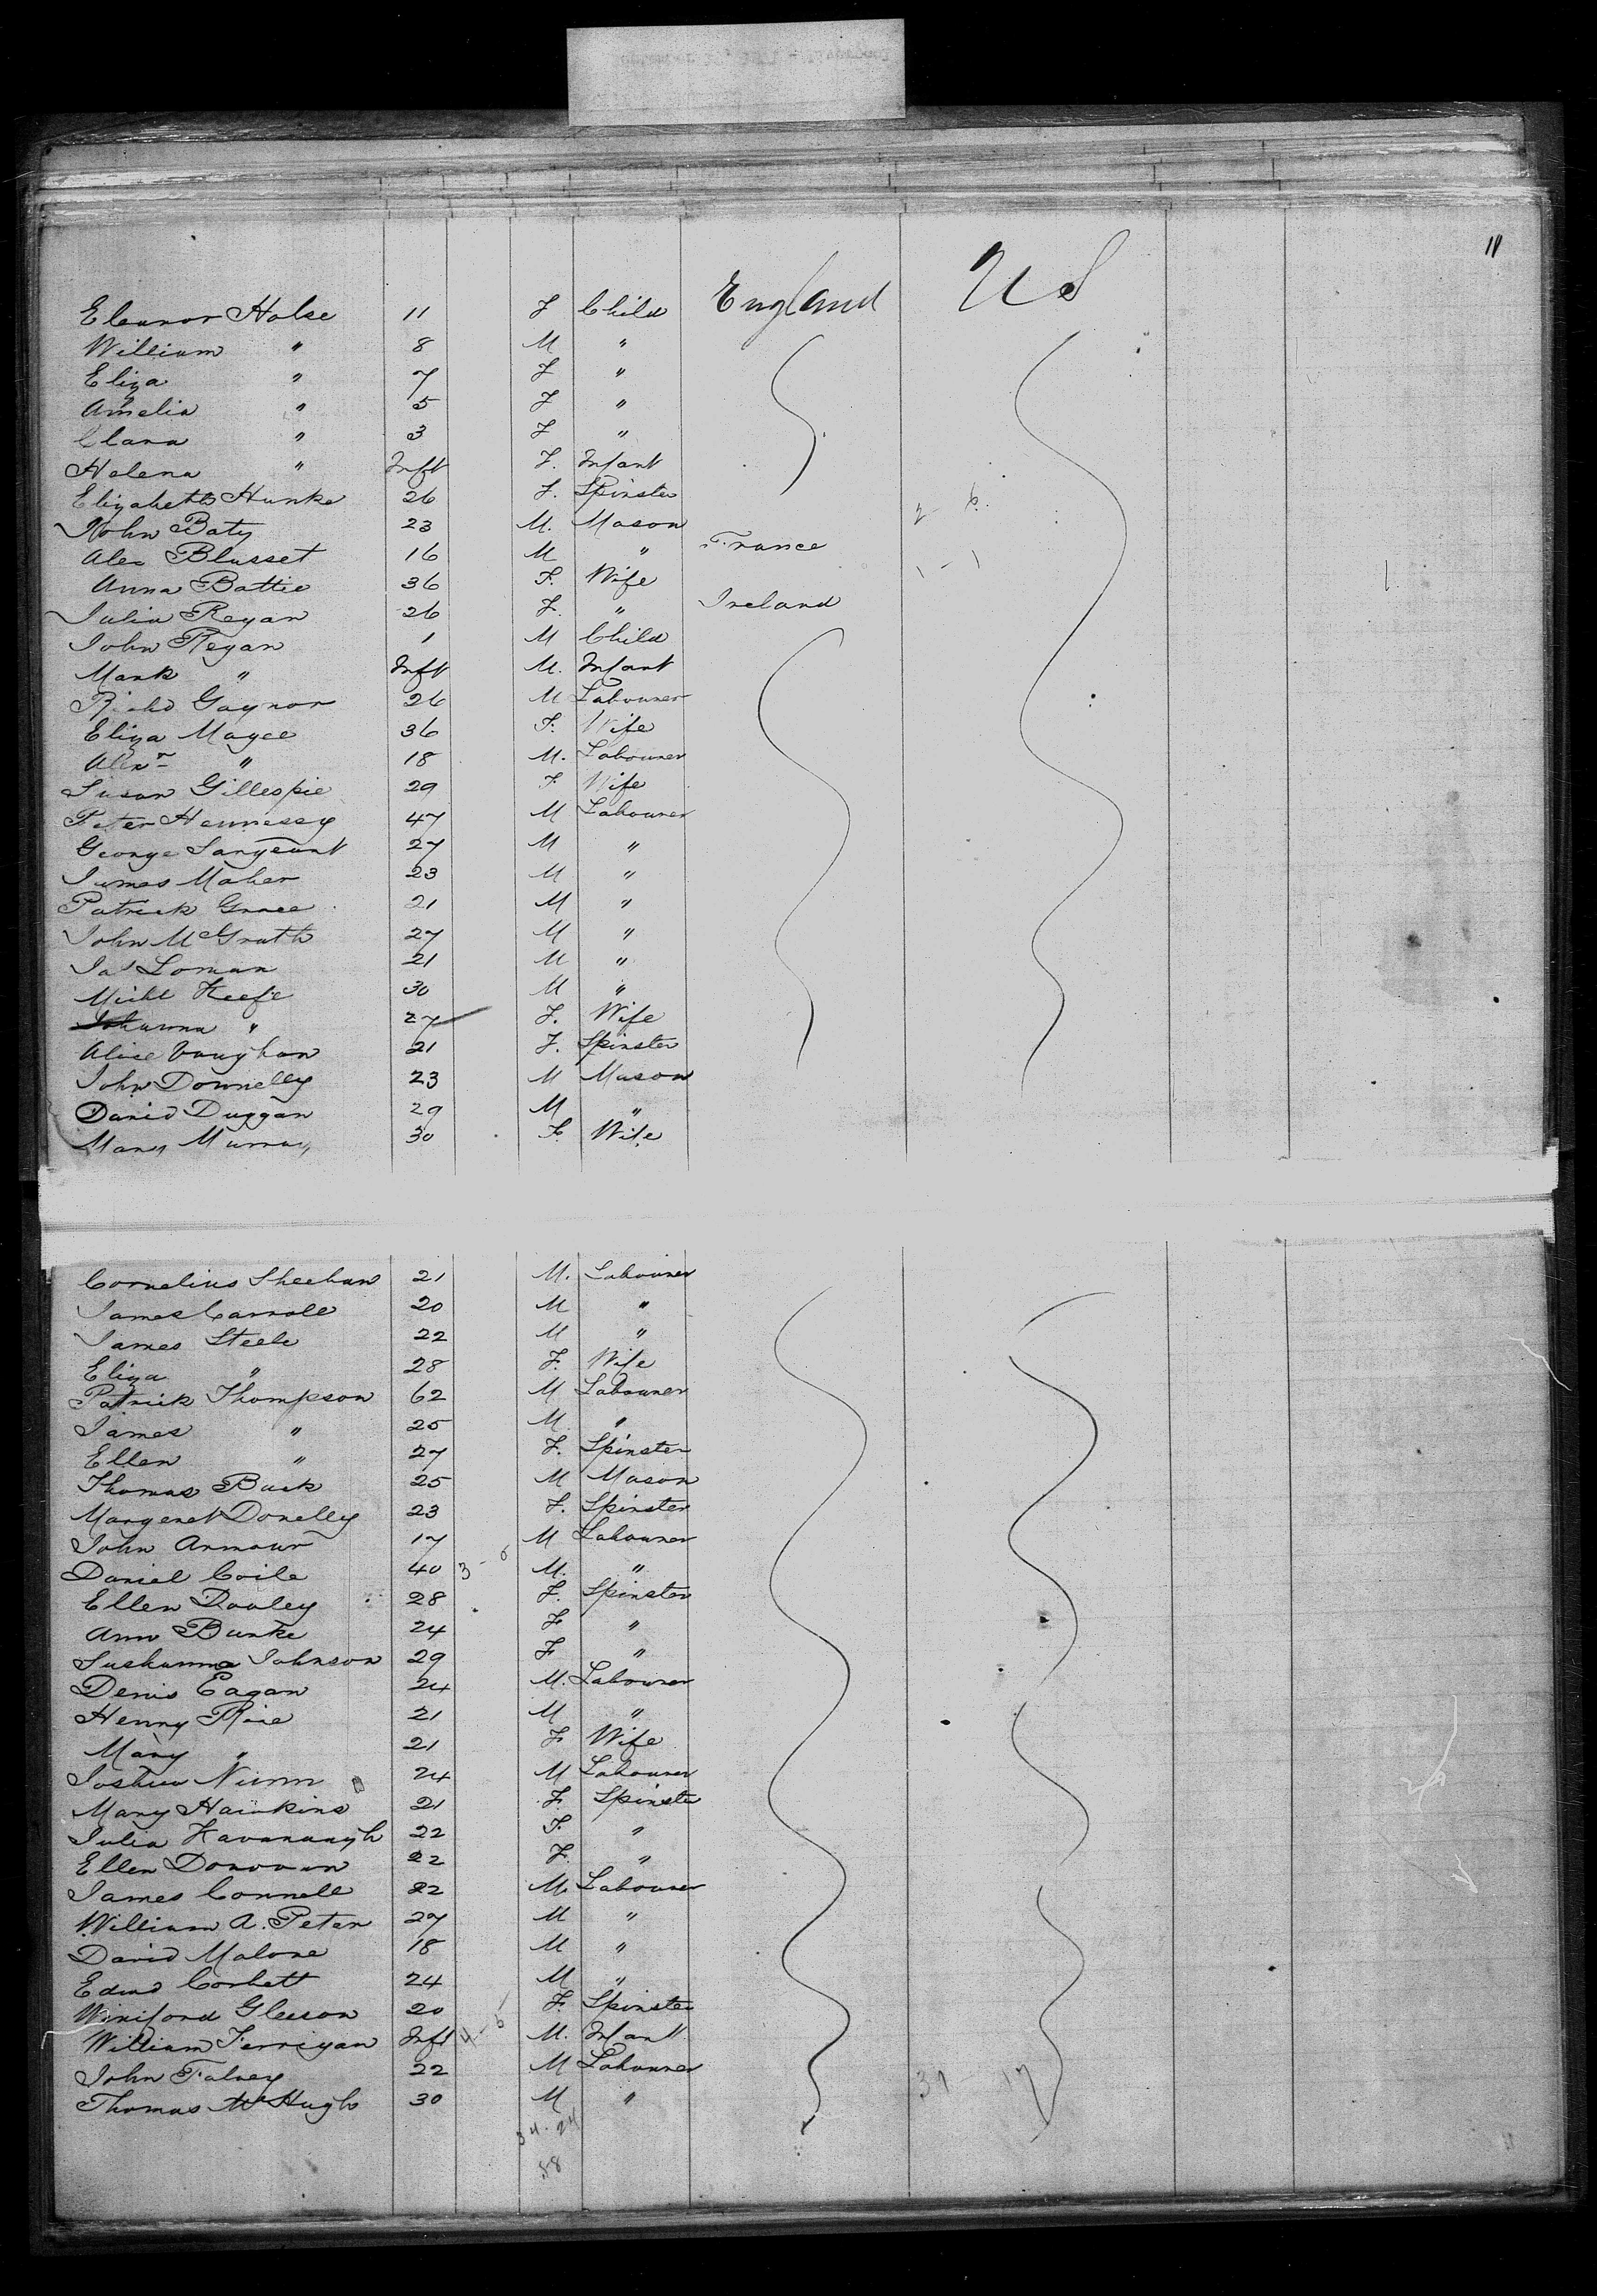 11
Eleanor Halse 11 F Child England US
William " 8 M "
Eliza " 7 F "
Amelia " 5 F "
Clara " 3 F "
Helena " Inft F. Infant
Elizabeth Hunke 26 F. Spinster
John Baty 23 M. Mason
Alex Blusset 16 M " France
Anna Battie 36 F. Wife
Julia Regan 26 F. " Ireland
John Regan 1 M Child
Mark " Inft M. Infant
Richd Gaynor 26 M Labourer
Eliza Magee 36 F. Wife
Alexr " 18 M. Labourer
Susan Gillespie 29 F Wife
Peter Hennessy 47 M Labourer
George Sargeant 27 M "
James Maher 23 M "
Patrick Grace 21 M "
John McGrath 27 M "
Jas Loman 21 M "
Michl Keefe 30 M "
Johanna " 27 F. Wife
Alice Vaughan 21 F. Spinster
John Donnelly 23 M Mason
David Duggan 29 M "
Mary Murray 30 F. Wife
Cornelius Sheehan 21 M. Labourer
James Carroll 20 M "
James Steele 22 M "
Eliza " 28 F. Wife
Patrick Thompson 62 M Labourer
James " 25 M "
Ellen " 27 F. Spinster
Thomas Buck 25 M Mason
Margeret Donelly 23 F. Spinster
John Armour 17 M Labourer
Daniel Coile 40 M. "
Ellen Dooley 28 F. Spinster
Ann Burke 24 F "
Sushanna Johnson 29 F "
Denis Eagan 24 M. Labourer
Henry Rice 21 M "
Mary " 21 F Wife
Joshua Nunn 24 M Labourer
Mary Hawkins 21 F. Spinster
Julia Kavanaugh 22 F. "
Ellen Donovan 22 F. "
James Connell 22 M. Labourer
William A. Peter 27 M "
David Malone 18 M "
Edwd Corbett 24 M "
Winiford Gleeson 20 F. Spinster
William Ferrigan Inft M. Infant
John Falvey 22 M Labourer
Thomas McHugh 30 M "
34. 24
58